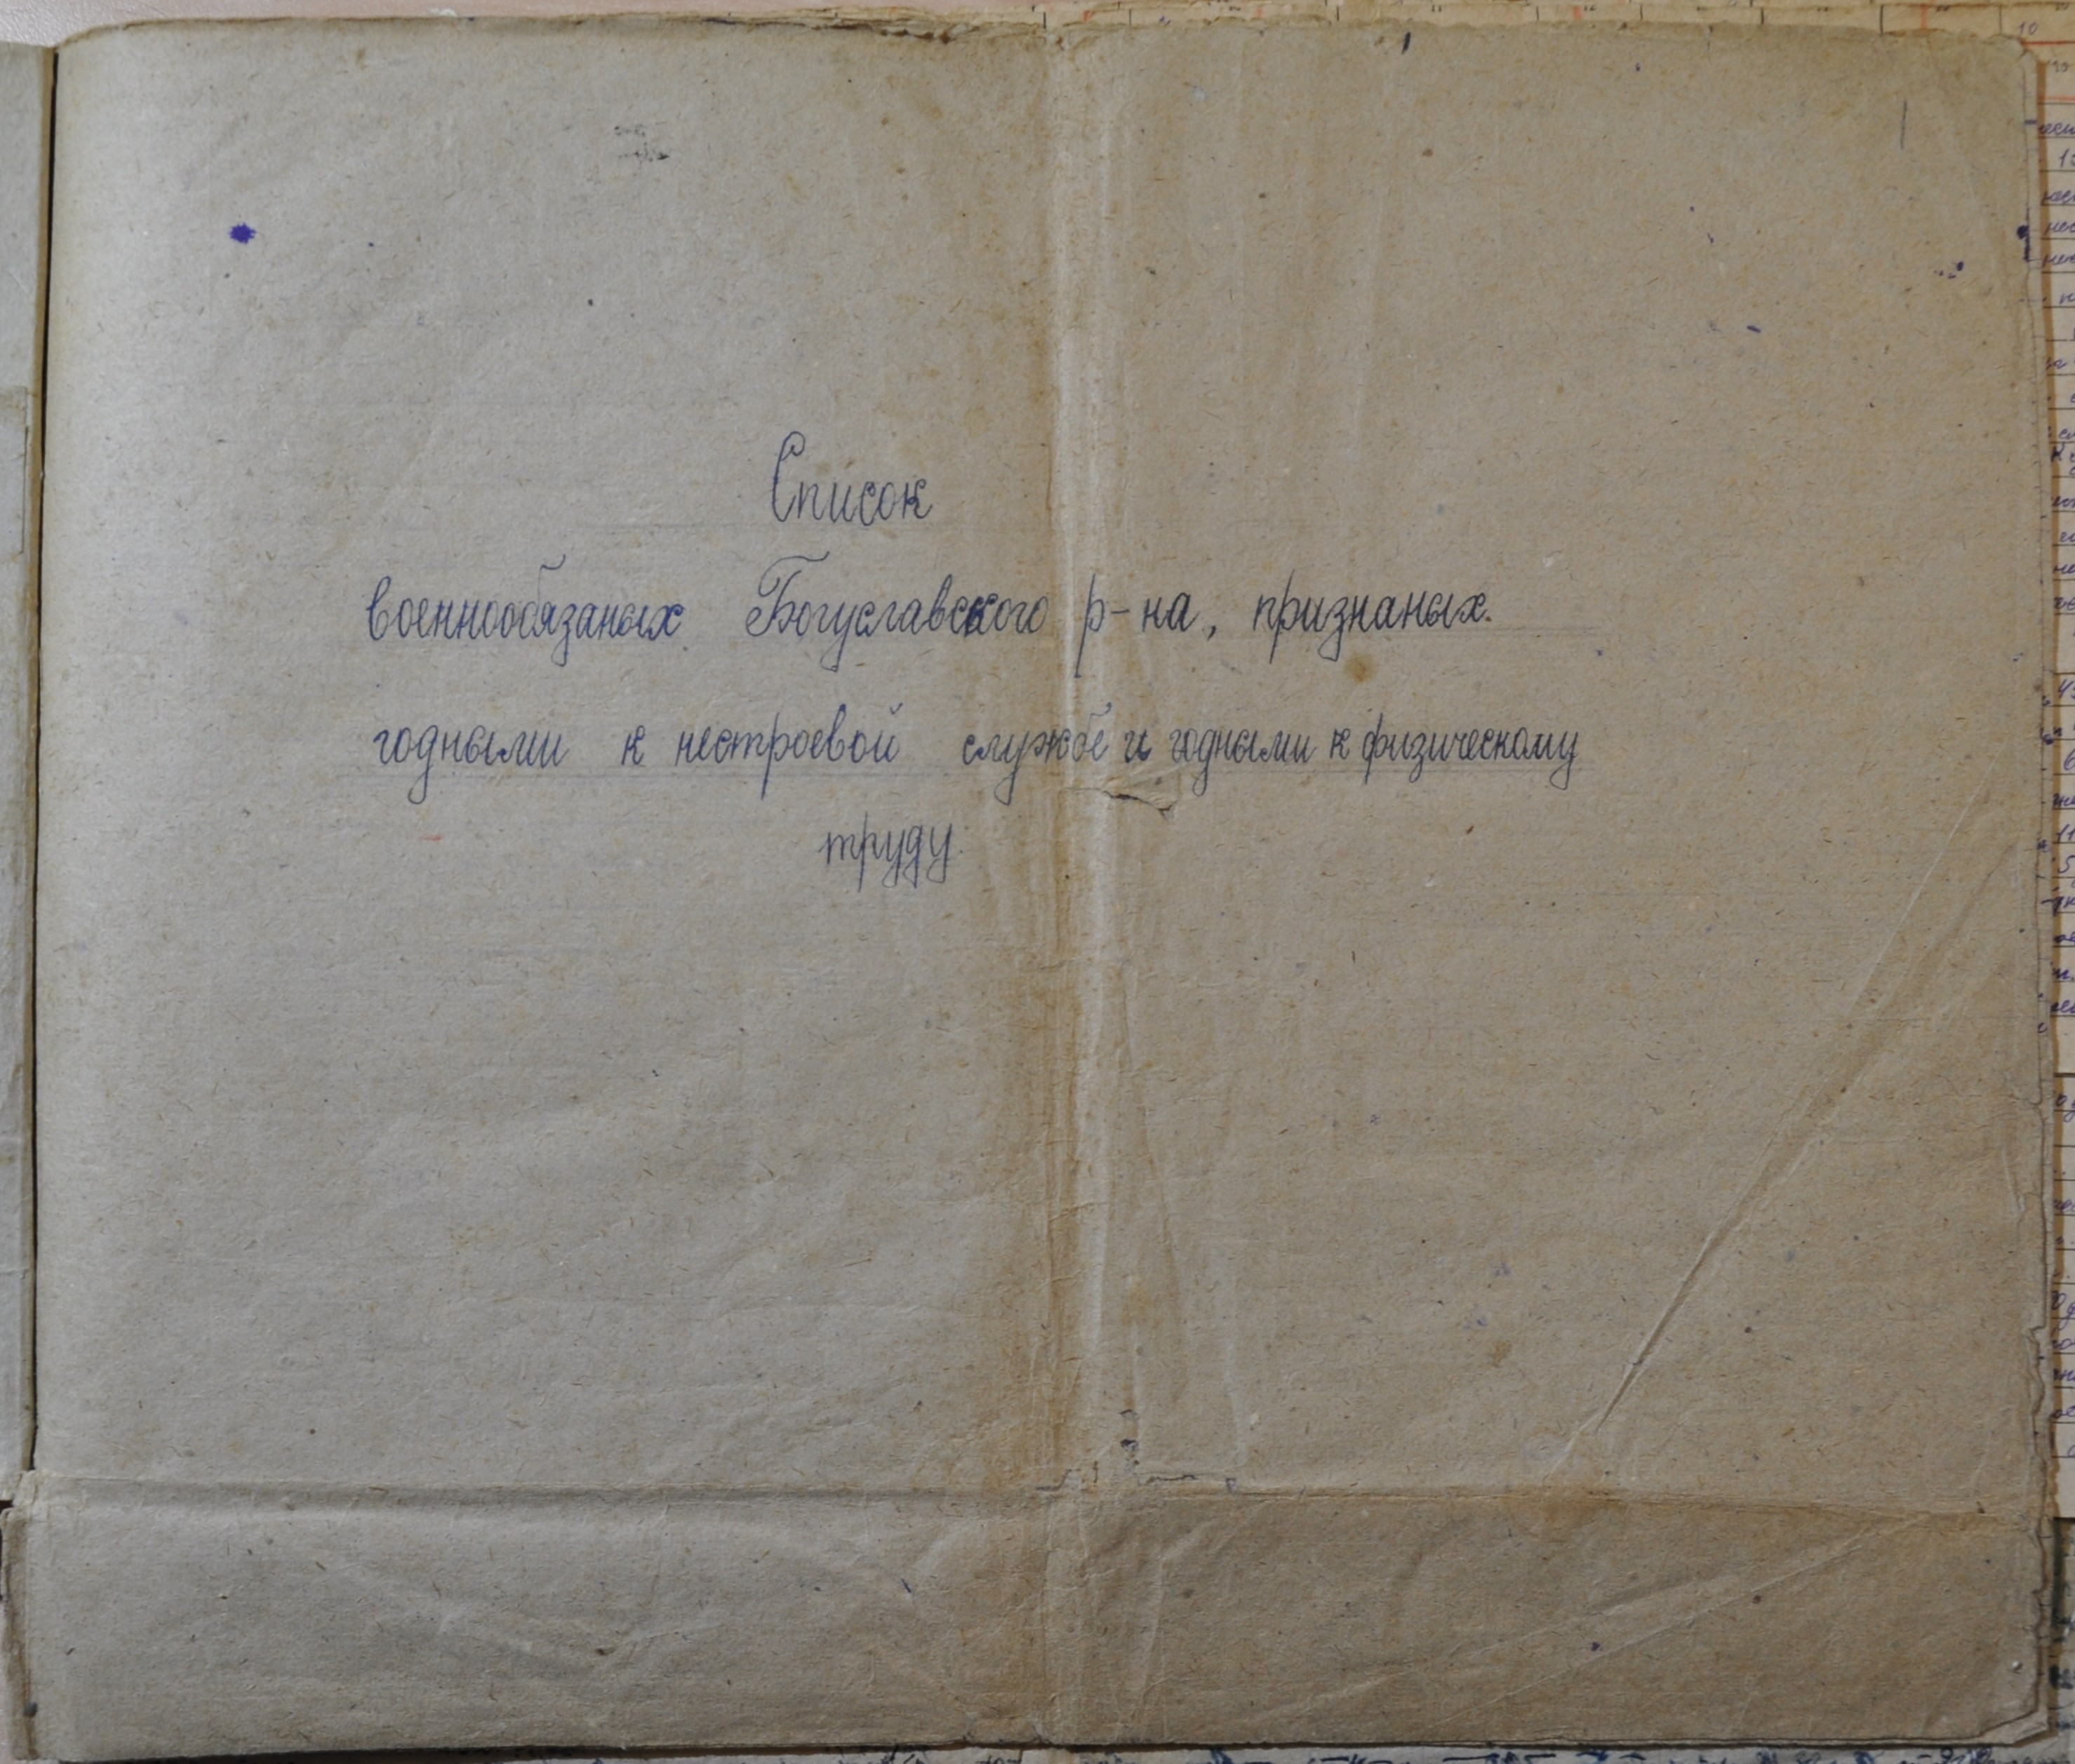 Список
военнообязаных Богуславского р-на, признаных.
годными к нестроевой службе и годными к физическому
труду.